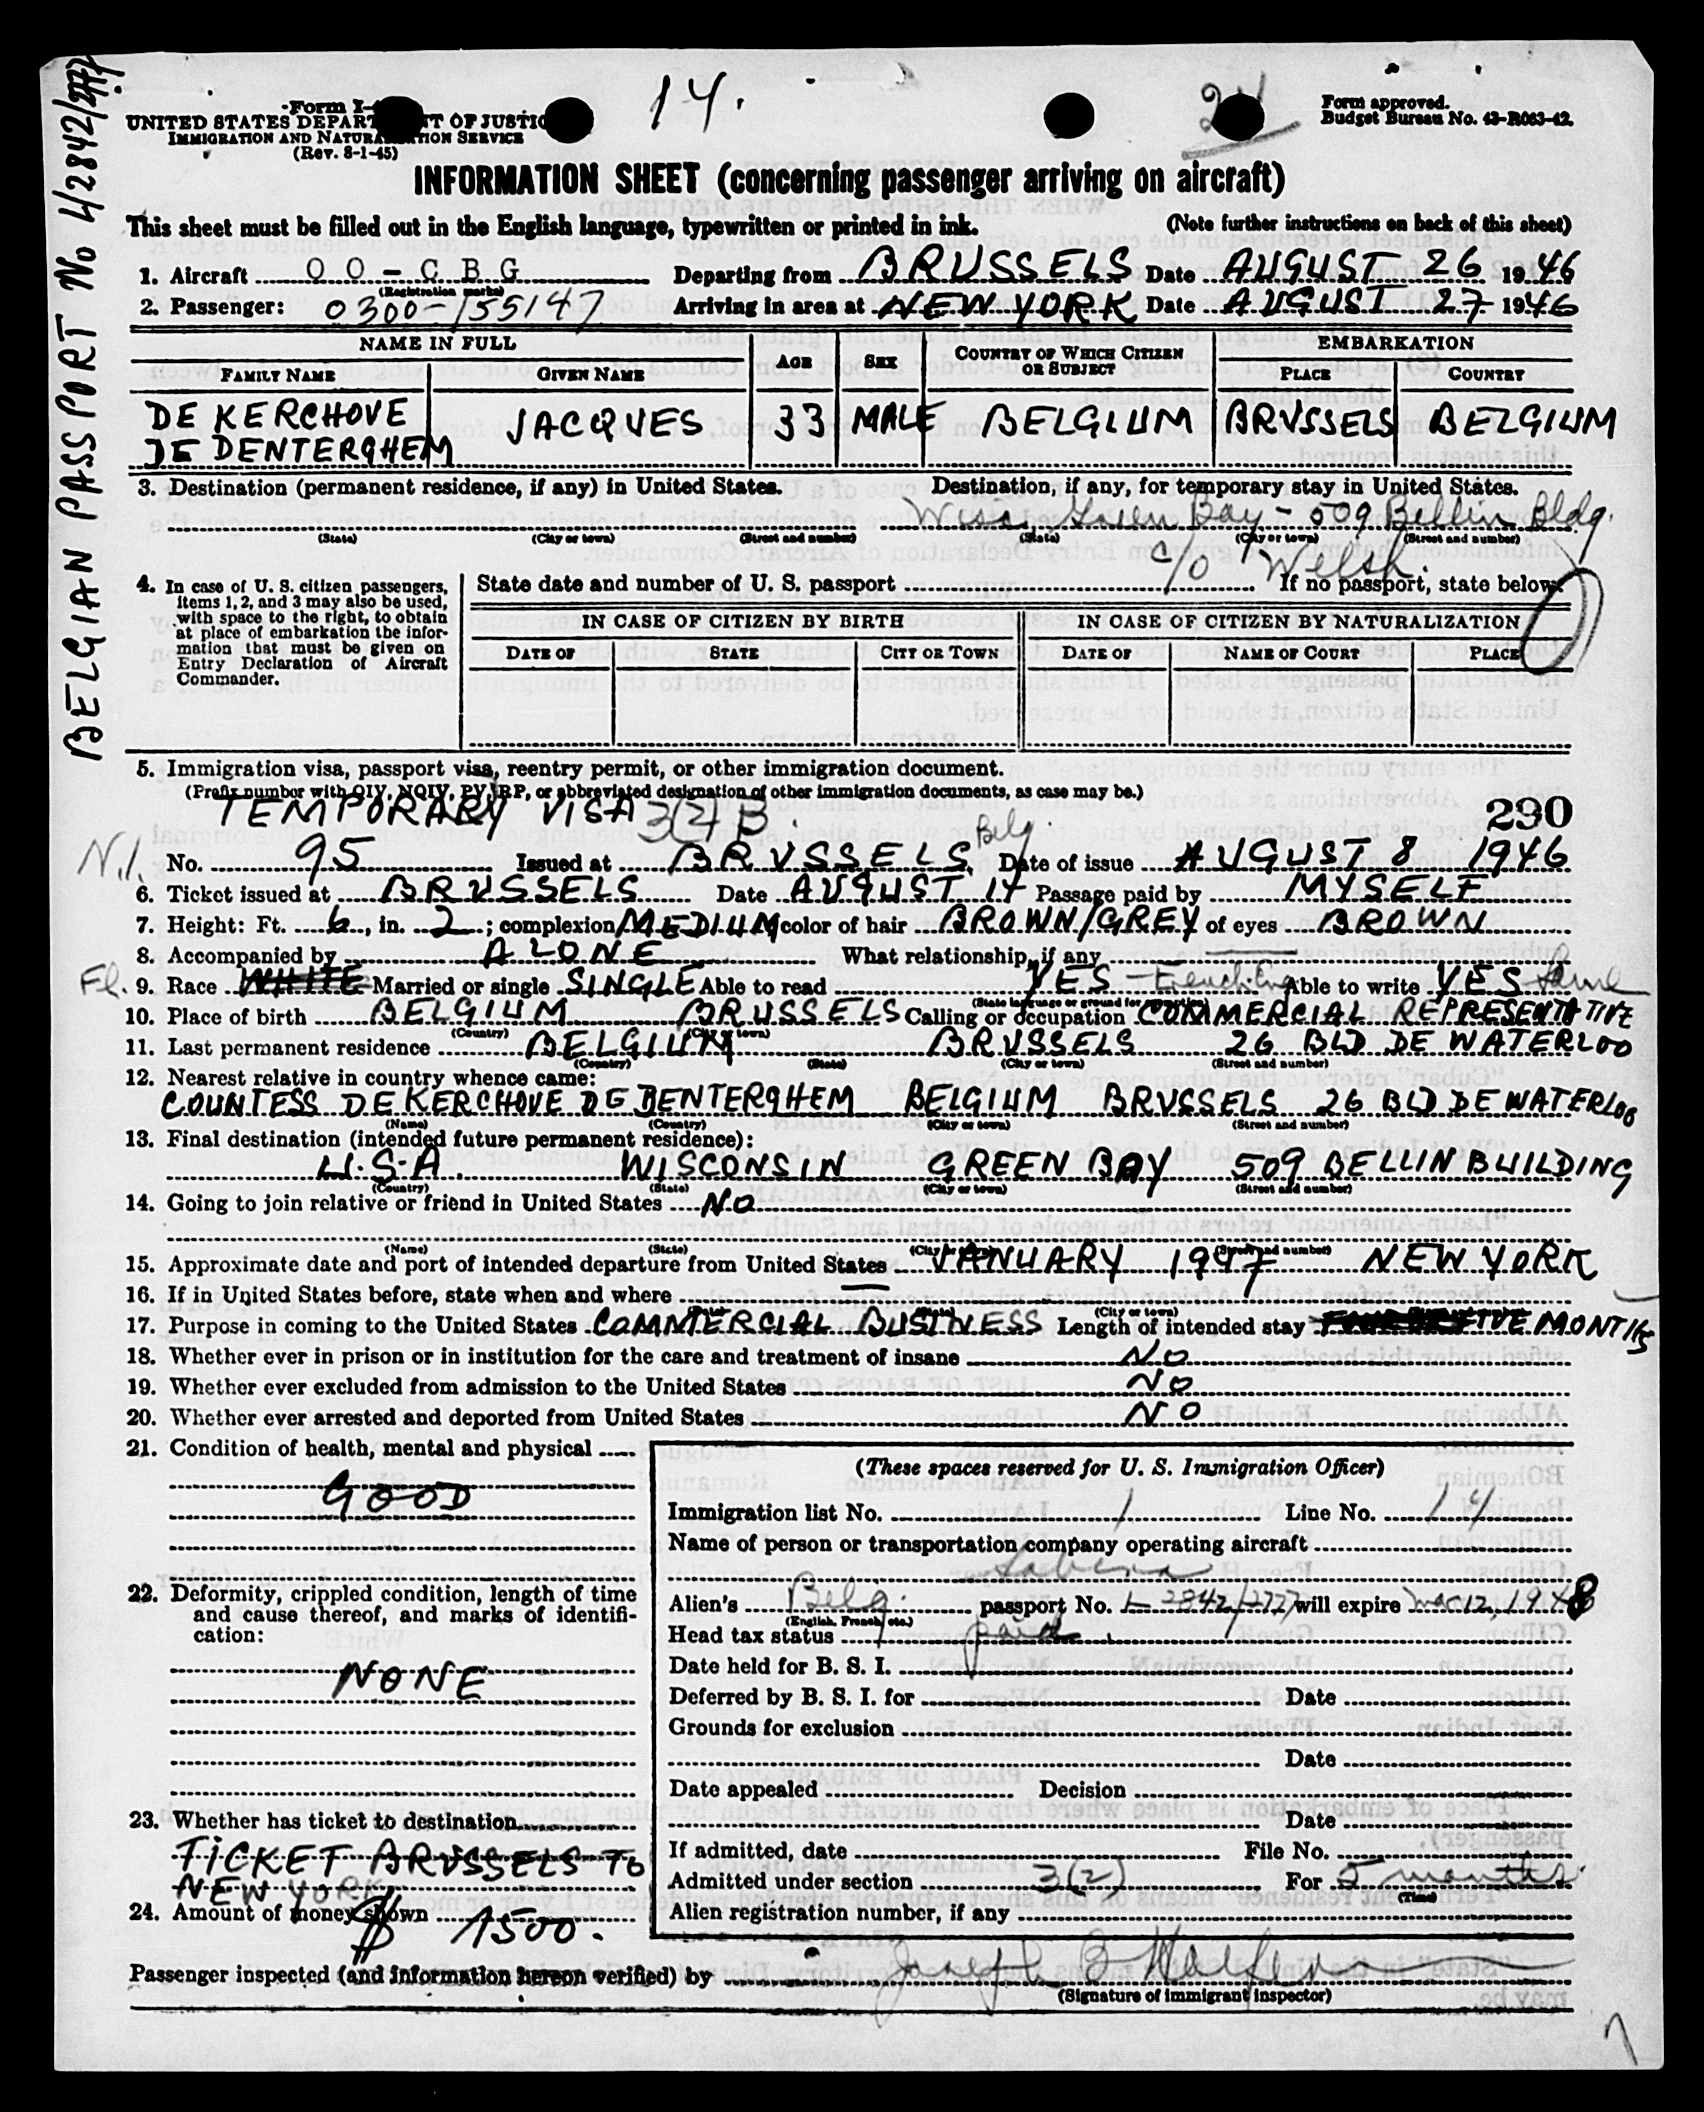 BELGIAN PASSPORT No 4/2842/2777
14.
24
Form I-
UNITED STATES DEPART T OF JUSTIC
IMMIGRATION AND NATURA TION SERVICE
(Rev. 8-1-45)
Form approved.
Budget Bureau No. 43-R063-42.
INFORMATION SHEET (concerning passenger arriving on aircraft)
This sheet must be filled out in the English language, typewritten or printed in ink. (Note further instructions on back of this sheet)
1. Aircraft OO-CBG Departing from BRUSSELS Date AUGUST 26 1946
(Registration marks)
2. Passenger: 0300-155147 Arriving in area at NEW YORK Date AUGUST 27 1946
NAME IN FULL AGE SEX COUNTRY OF WHICH CITIZEN OR SUBJECT EMBARKATION
FAMILY NAME GIVEN NAME PLACE COUNTRY
DE KERCHOVE DE DENTERGHEM JACQUES 33 MALE BELGIUM BRUSSELS BELGIUM
3. Destination (permanent residence, if any) in United States. Destination, if any, for temporary stay in United States.
Wisc, Green Bay - 509 Bellin Bldg.
(State) (City or town) (Street and number) (State) (City or town) (Street and number)
c/o Welsh.
4. In case of U. S. citizen passengers, items 1, 2, and 3 may also be used, with space to the right, to obtain at place of embarkation the information that must be given on Entry Declaration of Aircraft Commander.
State date and number of U. S. passport If no passport, state below:
IN CASE OF CITIZEN BY BIRTH IN CASE OF CITIZEN BY NATURALIZATION
DATE OF STATE CITY OR TOWN DATE OF NAME OF COURT PLACE
5. Immigration visa, passport visa, reentry permit, or other immigration document.
(Prefix number with QIV, NQIV, PV, RP, or abbreviated designation of other immigration documents, as case may be.)
TEMPORARY VISA 3(2) B. 290
N.I. No. 95 Issued at BRUSSELS, Belg. Date of issue AUGUST 8 1946
6. Ticket issued at BRUSSELS Date AUGUST 14 Passage paid by MYSELF
7. Height: Ft. 6, in. 2; complexion MEDIUM color of hair BROWN/GREY of eyes BROWN
8. Accompanied by ALONE What relationship, if any
Fl. 9. Race WHITE Married or single SINGLE Able to read YES - French Eng Able to write YES Same
(State language or ground for exemption)
10. Place of birth BELGIUM BRUSSELS Calling or occupation COMMERCIAL REPRESENTATIVE
(Country) (City or town)
11. Last permanent residence BELGIUM BRUSSELS 26 BLD DE WATERLOO
(Country) (State) (City or town) (Street and number)
12. Nearest relative in country whence came:
COUNTESS DE KERCHOVE DE DENTERGHEM BELGIUM BRUSSELS 26 BLD DE WATERLOO
(Name) (Country) (City or town) (Street and number)
13. Final destination (intended future permanent residence):
U.S.A. WISCONSIN GREEN BAY 509 BELLIN BUILDING
(Country) (State) (City or town) (Street and number)
14. Going to join relative or friend in United States NO
(Name) (State) (City or town) (Street and number)
15. Approximate date and port of intended departure from United States JANUARY 1947 NEW YORK
16. If in United States before, state when and where
(State) (City or town)
17. Purpose in coming to the United States COMMERCIAL BUSINESS Length of intended stay FIVE MONTHS
18. Whether ever in prison or in institution for the care and treatment of insane NO
19. Whether ever excluded from admission to the United States NO
20. Whether ever arrested and deported from United States NO
21. Condition of health, mental and physical
GOOD
22. Deformity, crippled condition, length of time and cause thereof, and marks of identification:
NONE
23. Whether has ticket to destination
TICKET BRUSSELS TO
NEW YORK
24. Amount of money shown $ 1500.
(These spaces reserved for U. S. Immigration Officer)
Immigration list No. 1 Line No. 14
Name of person or transportation company operating aircraft
Sabena
Alien's Belg. passport No. L 2842/2727 will expire Mar 12, 1948
(English, French, etc.)
Head tax status paid.
Date held for B. S. I.
Deferred by B. S. I. for Date
Grounds for exclusion
Date
Date appealed Decision
Date
If admitted, date File No.
Admitted under section 3(2) For 5 months
(Time)
Alien registration number, if any
Passenger inspected (and information hereon verified) by Joseph B
(Signature of immigrant inspector)